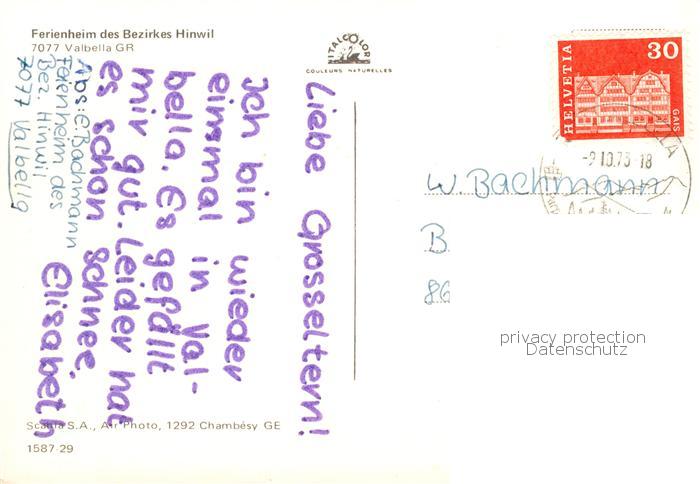 Ferienheim des Bezirkes Hinwil
7077 Valbella GR
ITALCOLOR
COULEURS NATURELLES
Abs: E. Bachmann
Ferienheim des
Bez. Hinwil
7077 Valbella
Liebe Grosseltern!
Ich bin wieder
einsmal in Val-
bella. Es gefällt
mir gut. Leider hat
es schon Schnee.
Elisabeth
HELVETIA
30
GAIS
-9.10.73-18
W. Bachmann
B
86
privacy protection
Datenschutz
Scania S.A., Air Photo, 1292 Chambésy GE
1587-29